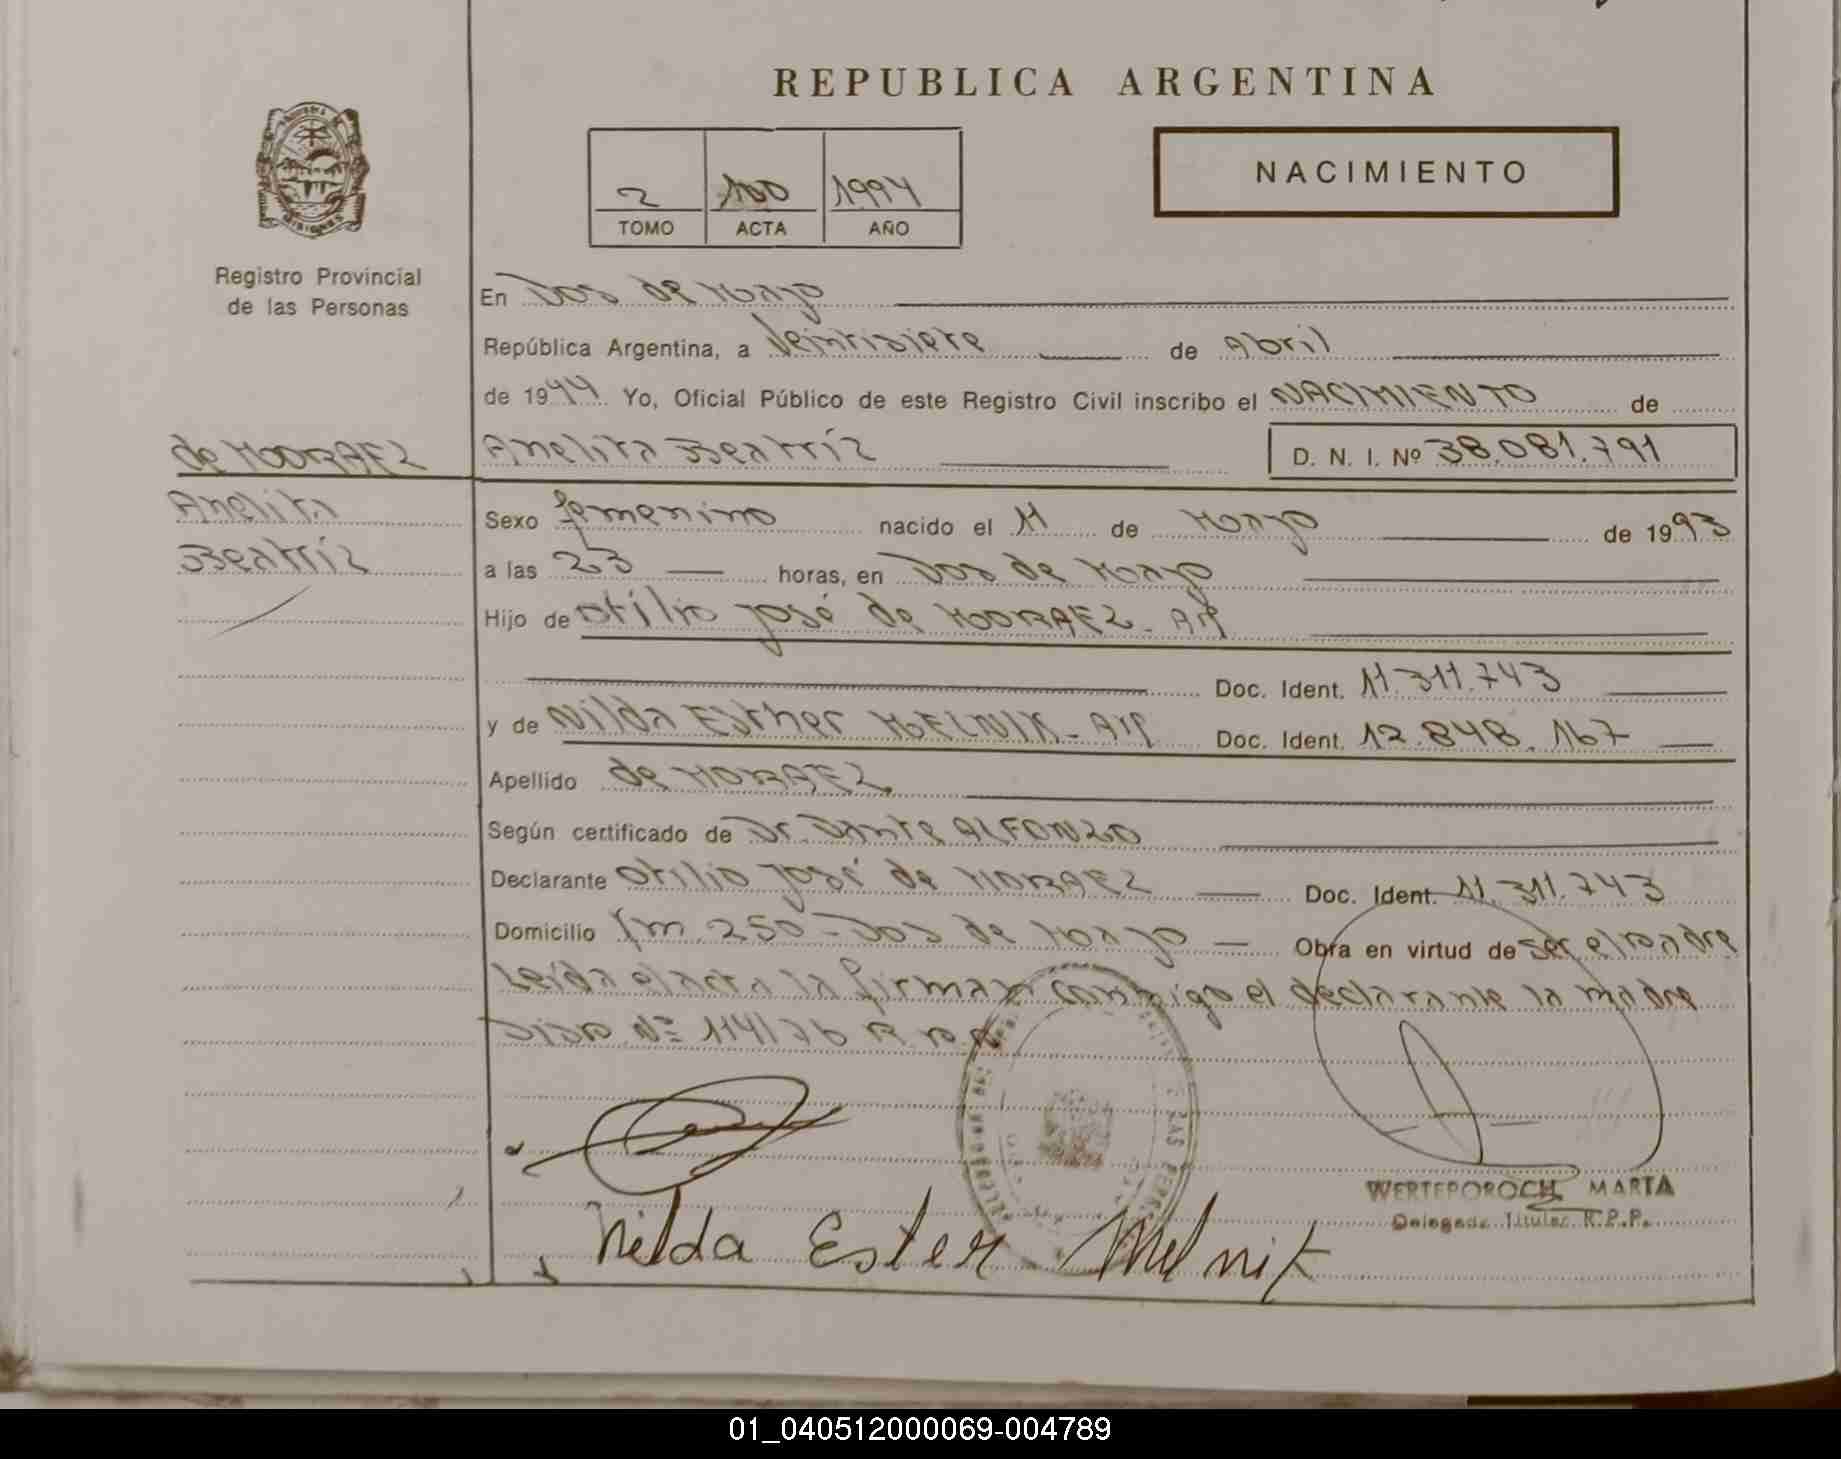 REPUBLICA ARGENTINA
NACIMIENTO
2 100 1994
TOMO ACTA AÑO
Registro Provincial
de las Personas
En Dos de Mayo
República Argentina, a Veintisiete de Abril
de 1994 Yo, Oficial Público de este Registro Civil inscribo el NACIMIENTO de
de MORAEZ
Anelita Beatríz
D. N. I. Nº 38.081.791
Anelita
Beatríz
Sexo femenino nacido el 11 de Mayo de 1993
a las 23 horas, en Dos de Mayo
Hijo de Otilio José de MORAEZ - Arg
Doc. Ident. 11.311.743
y de Nilda Esther MELNIK - Arg Doc. Ident. 12.848.167
Apellido de MORAEZ
Según certificado de Dr. Dante ALFONZO
Declarante Otilio José de MORAEZ Doc. Ident. 11.311.743
Domicilio Km 250 - Dos de Mayo Obra en virtud de ser el padre
Leída el acta la firman conmigo el declarante la madre
Disp Nº 114/76 R.P.P.
WERTEPOROCH MARTA
Delegada Titular R.P.P.
Nilda Ester Melnik
01_040512000069-004789